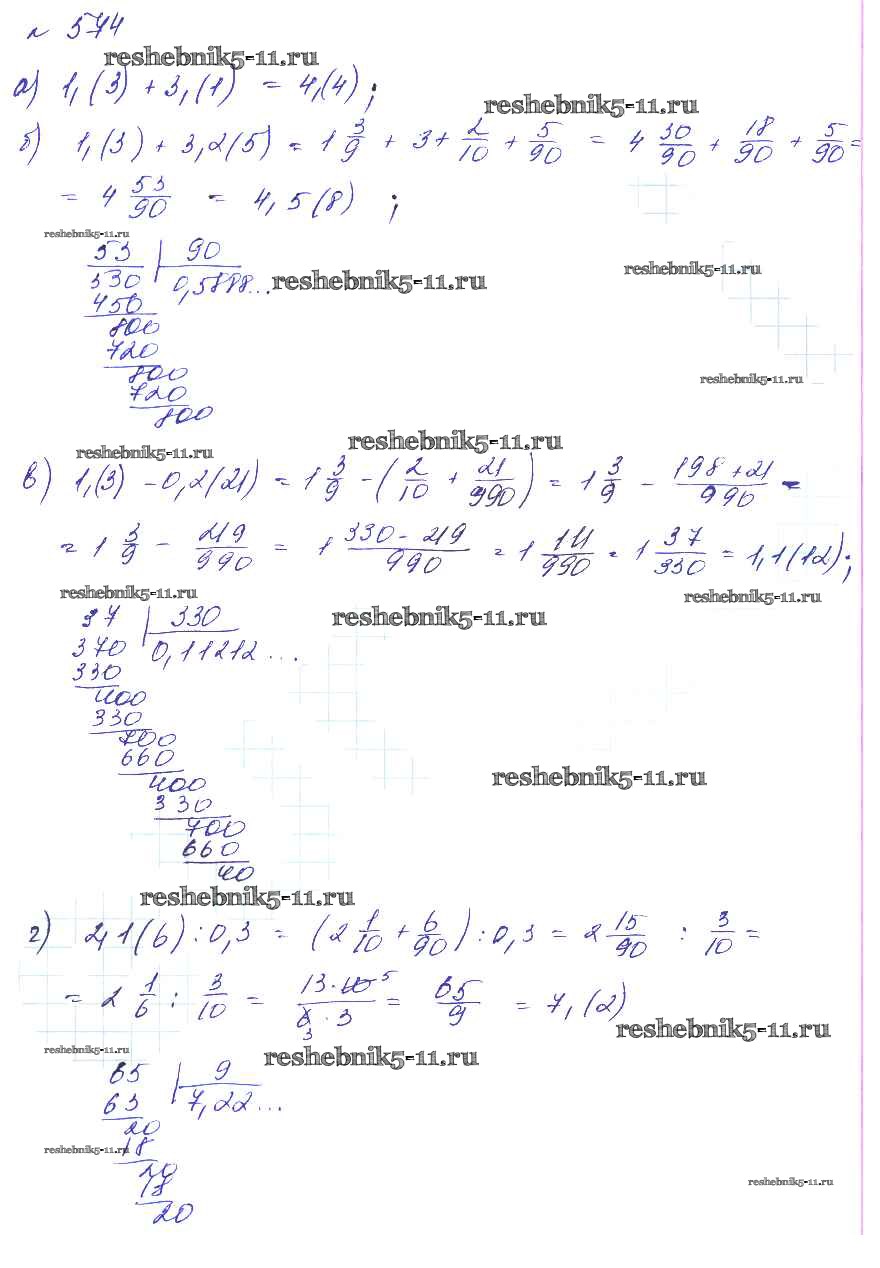 № 574
reshebnik5-11.ru
а) 1,(3) + 3,(1) = 4,(4);
reshebnik5-11.ru
б) 1,(3) + 3,2(5) = 1 3/9 + 3 + 2/10 + 5/90 = 4 30/90 + 18/90 + 5/90 =
= 4 53/90 = 4,5(8) ;
reshebnik5-11.ru
53 | 90
530 | 0,5888...
reshebnik5-11.ru
reshebnik5-11.ru
450
800
720
800
reshebnik5-11.ru
720
800
reshebnik5-11.ru
reshebnik5-11.ru
в) 1,(3) - 0,2(21) = 1 3/9 - (2/10 + 21/990) = 1 3/9 - (198 + 21)/990 =
= 1 3/9 - 219/990 = 1 (330 - 219)/990 = 1 111/990 = 1 37/330 = 1,1(12);
reshebnik5-11.ru
reshebnik5-11.ru
37 | 330
reshebnik5-11.ru
370 | 0,11212...
330
400
330
700
660
reshebnik5-11.ru
400
330
700
660
40
reshebnik5-11.ru
г) 2,1(6) : 0,3 = (2 1/10 + 6/90) : 0,3 = 2 15/90 : 3/10 =
= 2 1/6 : 3/10 = (13 · 10 5)/(6 3 · 3) = 65/9 = 7,(2)
reshebnik5-11.ru
reshebnik5-11.ru
reshebnik5-11.ru
65 | 9
63 | 7,22...
20
reshebnik5-11.ru
18
20
18
reshebnik5-11.ru
20